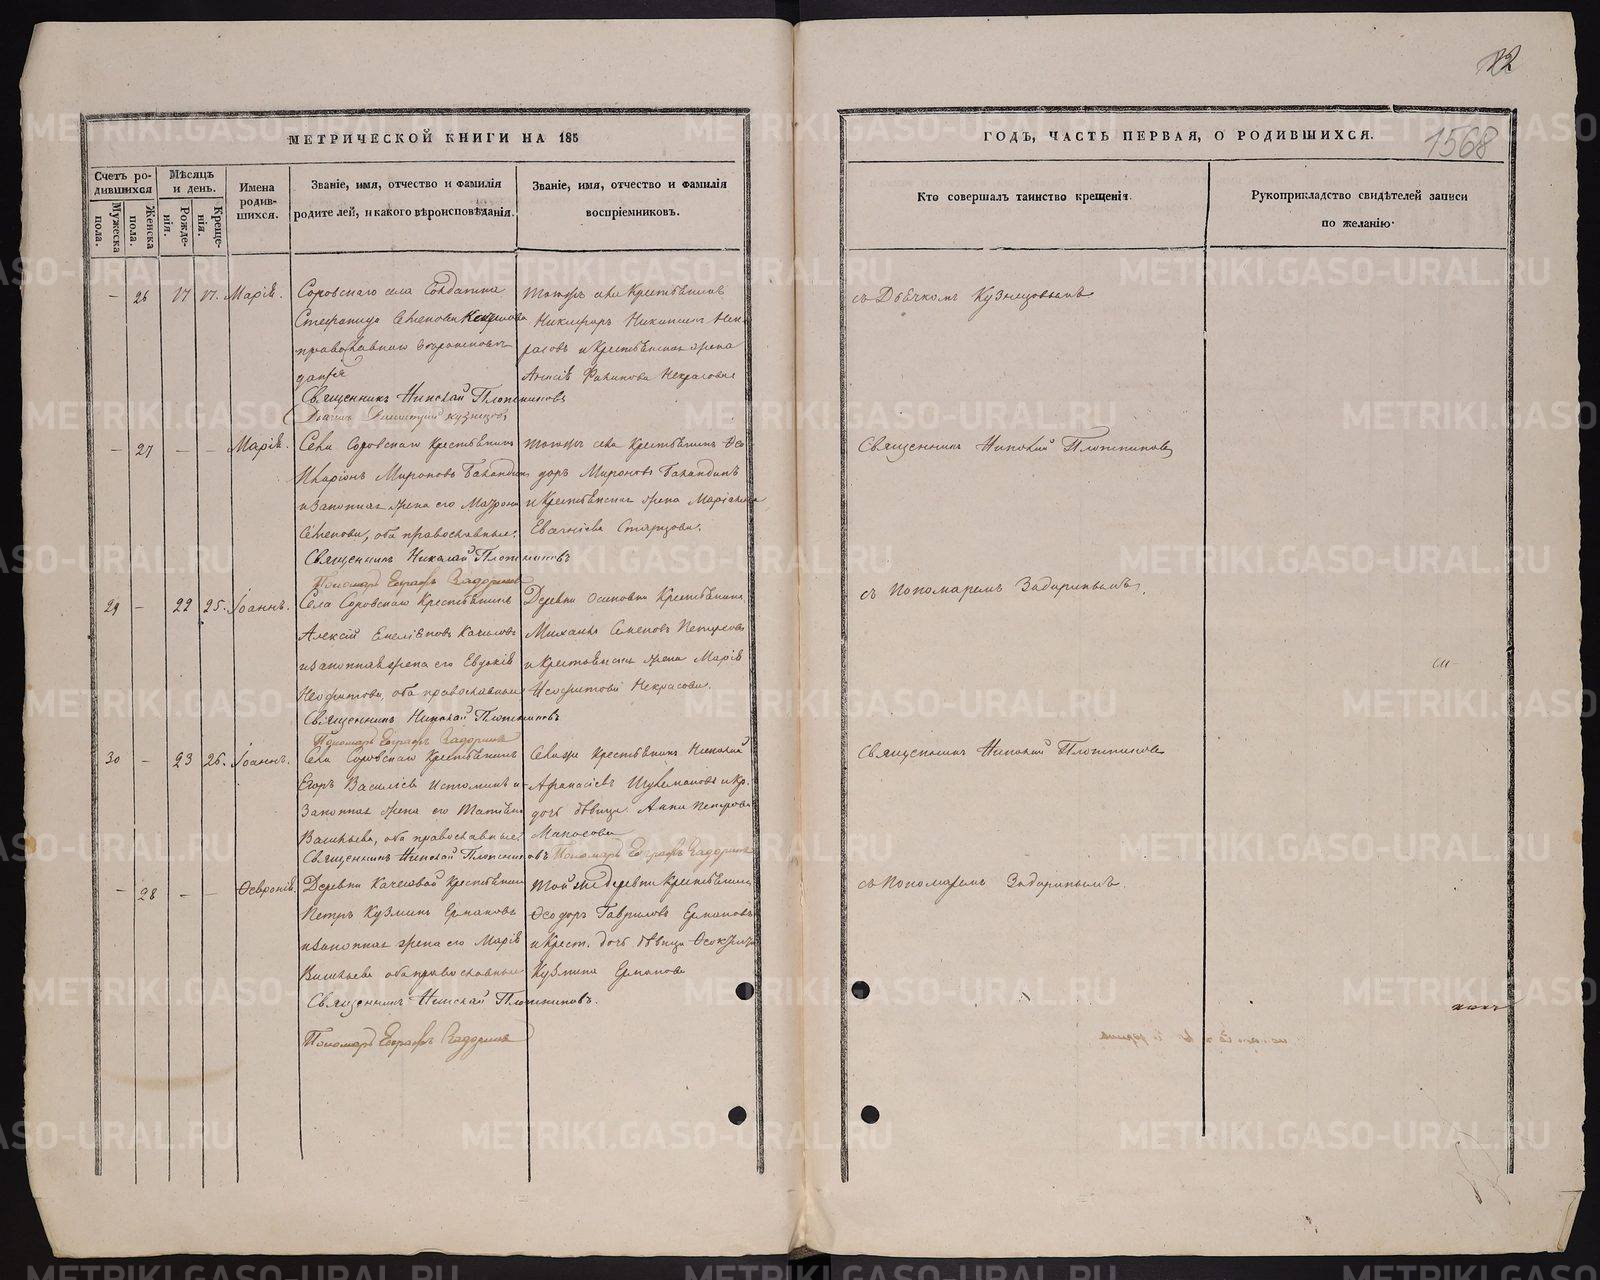 22
МЕТРИЧЕСКОЙ КНИГИ НА 185
ГОДЪ, ЧАСТЬ ПЕРВАЯ, О РОДИВШИХСЯ.
1568
Счетъ родившихся
Мужеска пола.
Женска пола.
Мѣсяцъ и день.
Рожденія.
Крещенія.
Имена родившихся.
Званіе, имя, отчество и фамилія
родителей, и какого вѣроисповѣданія.
Званіе, имя, отчество и фамилія
воспріемниковъ.
Кто совершалъ таинство крещенія.
Рукоприкладство свидѣтелей записи
по желанію.
— 26 17 17. Марія.
Соровскаго села Солдатка
православнаго вѣроисповѣданія
Священникъ Николай Плотниковъ
Дьячекъ Димитрій Кузнецовъ
Тогожъ села Крестьянинъ
Никифоръ Никитинъ Некрасовъ и Крестьянская жена
Некрасова
съ Дьячкомъ Кузнецовымъ
— 27 — — Марія.
Села Соровскаго Крестьянинъ
Иларіонъ Мироновъ Баландинъ
и законная жена его Матрона
Семенова, оба православные.
Священникъ Николай Плотниковъ
Пономарь Евграфъ Задоринъ
Тогожъ села Крестьянинъ Ѳеодоръ Мироновъ Баландинъ
и Крестьянская жена
Старцова.
Священникъ Николай Плотниковъ
29 — 22 25. Іоаннъ.
Села Соровскаго Крестьянинъ
Алексій
и законная жена его Евдокія
Неофитова, оба православные
Священникъ Николай Плотниковъ
Пономарь Евграфъ Задоринъ
Деревни Осиновки Крестьянинъ
Михаилъ Семеновъ
и Крестьянская жена Марія
Неофитова Некрасова.
съ Пономаремъ Задоринымъ.
30 — 23 26. Іоаннъ.
Села Соровскаго Крестьянинъ
Егоръ Василіевъ Истоминъ и
Законная жена его Татіана
Васильева, оба православные
Священникъ Николай Плотниковъ Пономарь Евграфъ Задоринъ
Крестьянинъ Николай
Афанасіевъ
дочь дѣвица Анна Петрова
Священникъ Николай Плотниковъ
— 28 — — Ѳевронія.
Деревни Качесовой Крестьянинъ
Петръ Кузминъ Ермаковъ
и законная жена его Марія
Васильева оба православные
Священникъ Николай Плотниковъ.
Пономарь Евграфъ Задоринъ
Той же деревни Крестьянинъ
Ѳеодоръ Гавриловъ Ермаковъ
и Крест. дочь дѣвица
Кузмина Ермакова
съ Пономаремъ Задоринымъ.
METRIKI.GASO-URAL.RU